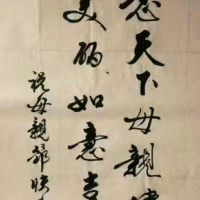 愿天下母親健
美满如意吉
祝母親節快